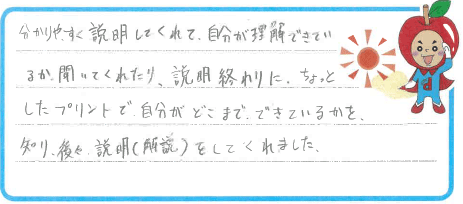 分かりやすく説明してくれて、自分が理解できてい
るか聞いてくれたり、説明終わりに、ちょっと
したプリントで、自分がどこまで、できているかを、
知り、後々、説明(解説)をしてくれました。